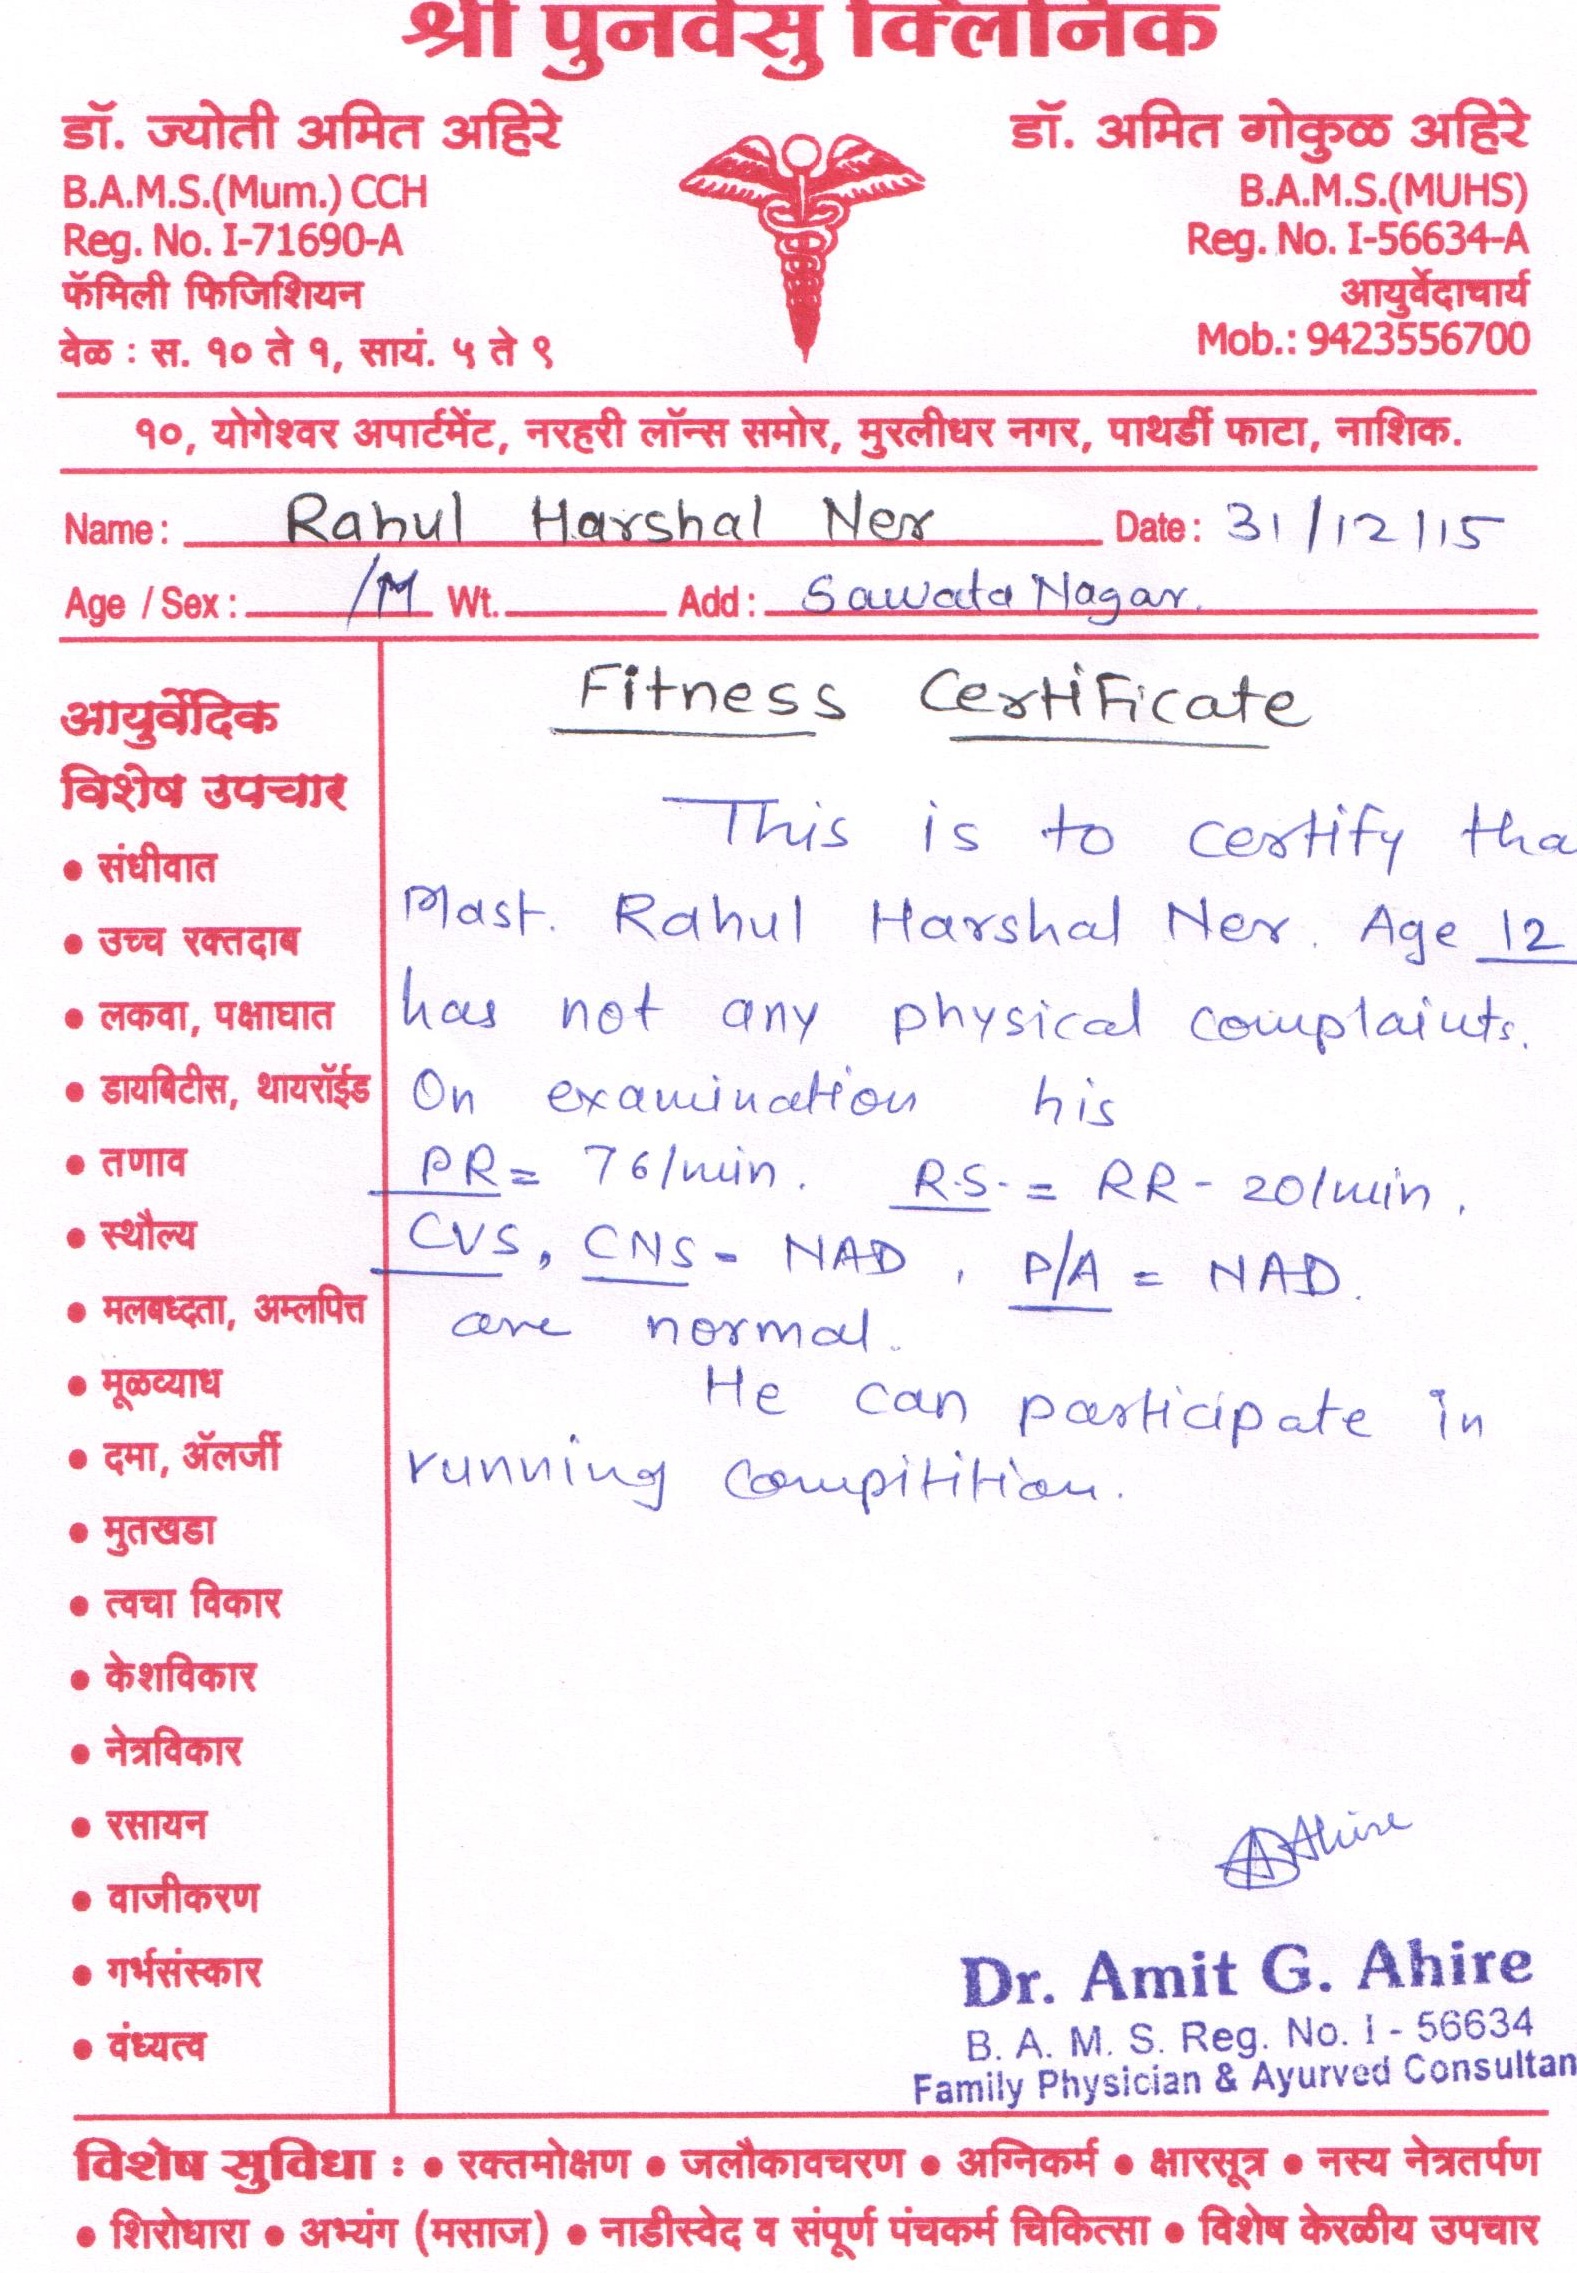 श्री पुनर्वसु क्लिनिक
डॉ. ज्योती अमित अहिरे
B.A.M.S.(Mum.) CCH
Reg. No. I-71690-A
फॅमिली फिजिशियन
वेळ : स. १० ते १, सायं. ५ ते ९
डॉ. अमित गोकुळ अहिरे
B.A.M.S.(MUHS)
Reg. No. I-56634-A
आयुर्वेदाचार्य
Mob.: 9423556700
१०, योगेश्वर अपार्टमेंट, नरहरी लॉन्स समोर, मुरलीधर नगर, पाथर्डी फाटा, नाशिक.
Name: Rahul Harshal Ner Date: 31/12/15
Age / Sex: /M Wt. Add: Sawata Nagar.
आयुर्वेदिक
विशेष उपचार
• संधीवात
• उच्च रक्तदाब
• लकवा, पक्षाघात
• डायबिटीस, थायरॉईड
• तणाव
• स्थौल्य
• मलबध्दता, अम्लपित्त
• मूळव्याध
• दमा, ॲलर्जी
• मुतखडा
• त्वचा विकार
• केशविकार
• नेत्रविकार
• रसायन
• वाजीकरण
• गर्भसंस्कार
• वंध्यत्व
Fitness Certificate
This is to certify tha
Mast. Rahul Harshal Ner. Age 12
has not any physical complaints.
On examination his
PR = 76/min. R.S. = RR - 20/min.
CVS, CNS - NAD, P/A = NAD.
are normal.
He can participate in
running compitition.
AAhire
Dr. Amit G. Ahire
B. A. M. S. Reg. No. I - 56634
Family Physician & Ayurved Consultan
विशेष सुविधा : • रक्तमोक्षण • जलौकावचरण • अग्निकर्म • क्षारसूत्र • नस्य नेत्रतर्पण
• शिरोधारा • अभ्यंग (मसाज) • नाडीस्वेद व संपूर्ण पंचकर्म चिकित्सा • विशेष केरळीय उपचार